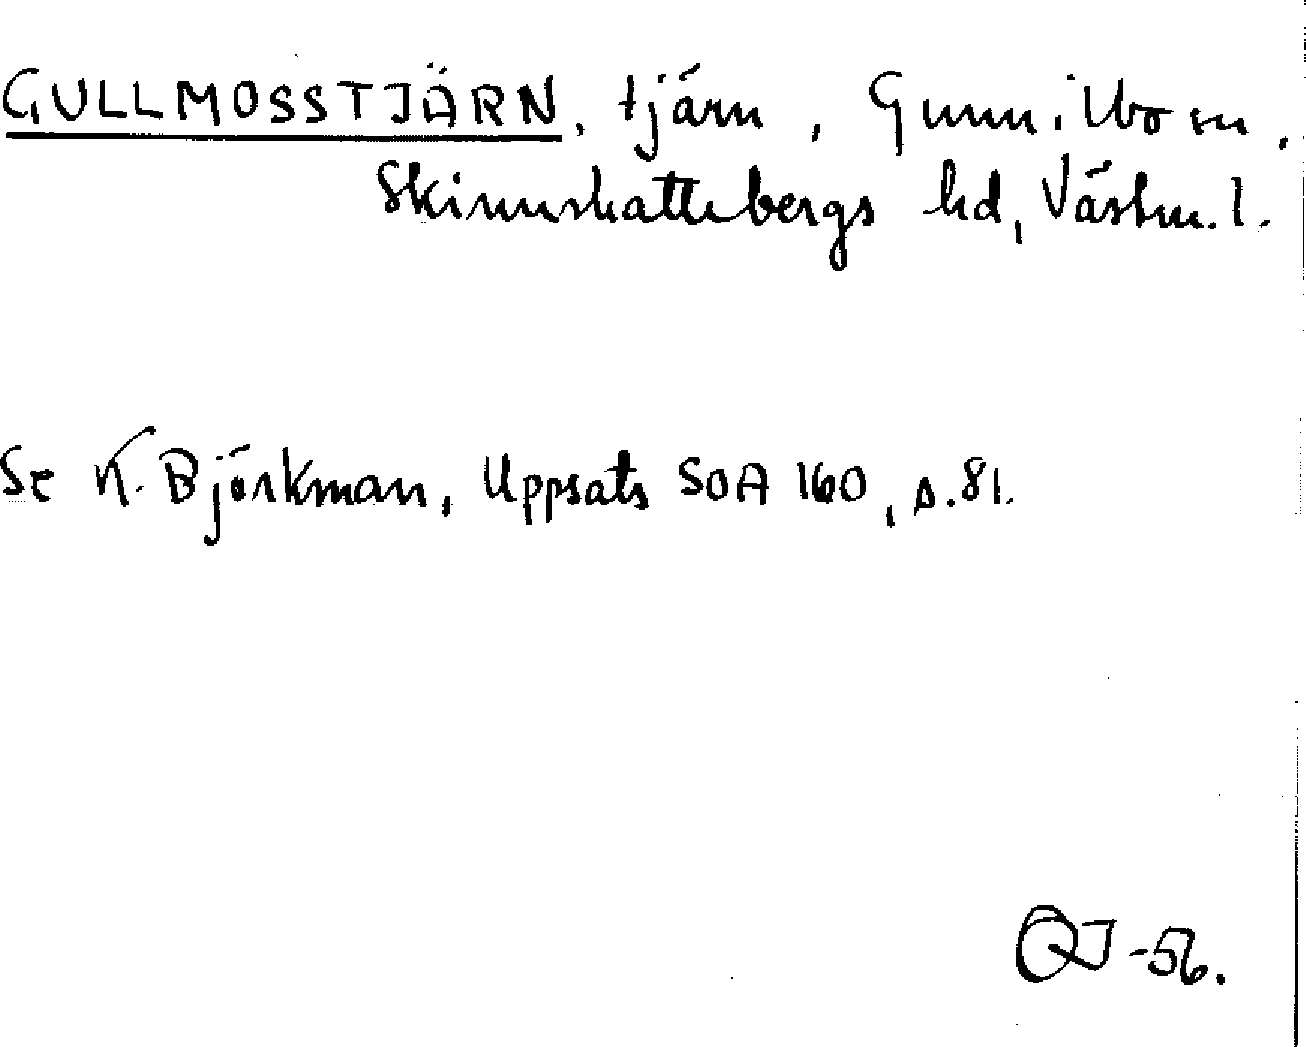 GULLMOSSTJÄRN, tjärn, Gunnilbo sn,
Skinnskattebergs hd, Västm. l.
Se K. Björkman, Uppsats SOA 160, s. 81.
OJ -56.